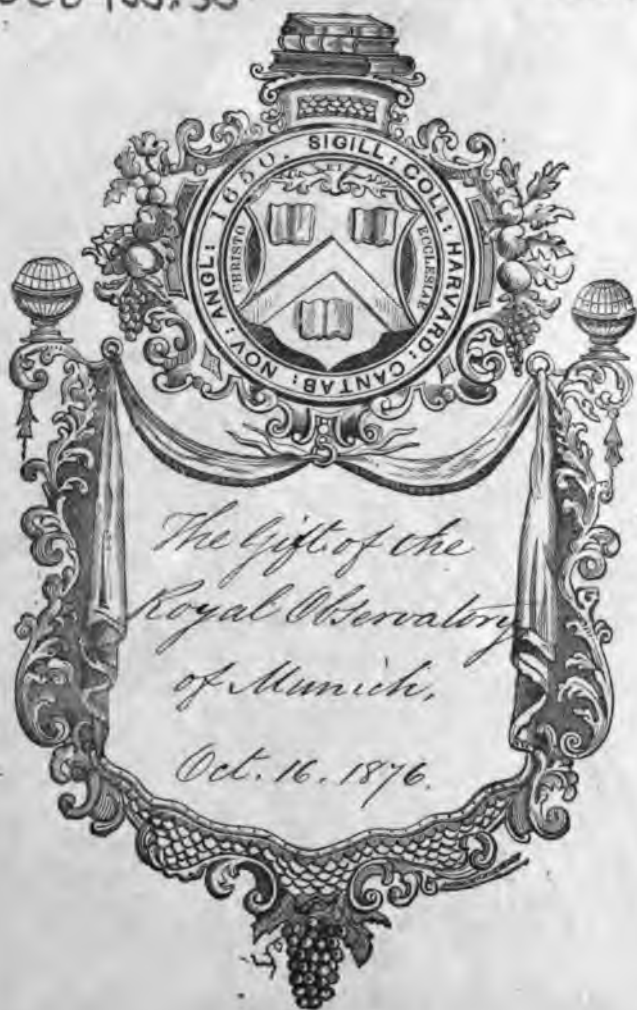 SIGILL: COLL: HARVARD: CANTAB: NOV: ANGL: 1650.
ET
CHRISTO
ECCLESIAE
The Gift of the
Royal Observatory
of Munich,
Oct. 16. 1876.